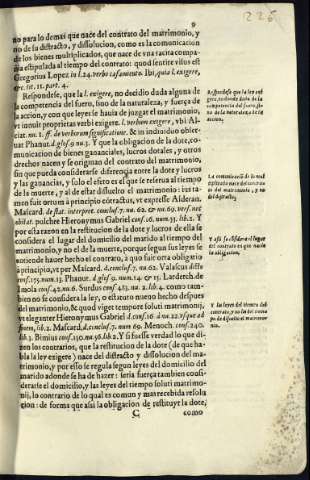 9
226
no para lo demas que nace del contrato del matrimonio, y
no de su distracto, y dissolucion, como es la comunicacion
de los bienes multiplicados, que nace de vna tacita compa-
ñia estipulada al tiempo del contrato: quod sentire visus est
Gregorius Lopez in l.24. verbo casamento. Ibi, quia l. exigere,
&c. tit. 11. part. 4.
Respondese, que la l. exigere, no decidio duda alguna de
la competencia del fuero, sino de la naturaleza, y fuerça de
la accion, y con que leyes se hauia de juzgar el matrimonio,
vt innuit proprietas verbi exigere. l. verbum exigere, vbi Al-
ciat. nu. 1. ff. de verborum significatione. & in indiuiduo obser-
uat Phanut. d. glos. 9 nu. 3. Y que la obligacion de la dote, co-
municacion de bienes gananciales, lucros dotales, y otros
drechos nacen y se originan del contrato del matrimonio,
sin que pueda considerarse diferencia entre la dote y lucros
y las ganancias, y solo el efeto es el que se reserua al tiempo
de la muerte, y al de estar dissuelto el matrimonio: ius ta-
men fuit ortum à principio cõtractus, vt expresse Alderan.
Mascard. de stat. interpret. conclus. 7. nu. 62. & nu. 69. vers. nec
obstat. pulchre Hieronymus Gabriel cons. 16. num. 35. lib. 1. Y
por esta razon en la restitucion de la dote y lucros de ella se
considera el lugar del domicilio del marido al tiempo del
matrimonio, y no el de la muerte, porque segun sus leyes se
entiende hauer hecho el contrato, à quo fuit orta obligatio
à principio, vt per Mascard. d. conclus. 7. nu. 62. Valascus dicto
cons. 175. num. 13. Phanut. d. glos. 9. num. 14. & 15. Larderch. de
Imola cons. 42. nu. 6. Surdus cons. 423. nu. 2. lib. 4. como tam
bien no se considera la ley, o estatuto nueuo hecho despues
del matrimonio, & quod viget tempore soluti matrimonij,
vt eleganter Hieronymus Gabriel d. cons. 16. à nu. 22. & que ad
finem, lib. 2. Mascard. d. conclus. 7. num. 69. Menoch. cons. 240.
lib. 3. Bimius cons. 130. nu. 56. lib. 2. Y si fuesse verdad lo que di-
zen los contrarios, que la restitucion de la dote (de que ha-
bla la ley exigere) nace del distracto y dissolucion del ma-
trimonio, y por esso se regula segun leyes del domicilio del
marido adonde se ha de hazer: seria fuerça tambien consi-
derarse el domicilio, y las leyes del tiempo soluti matrimo-
nij, lo contrario de lo qual es comun y mas recebida resolu
cion: de forma que assi la obligacion de restituyr la dote,
C como
Respondese que la ley exigere, no decide duda de la competencia del fuero, sino de la naturaleza de la accion.
La comunicacion de los multiplicados nace del contrato del matrimonio, y no del distracto,
Y assi se considera el lugar del contrato en que nacio la obligacion,
Y las leyes del tiempo del contrato, y no las del tiempo de dissuelto el matrimonio.